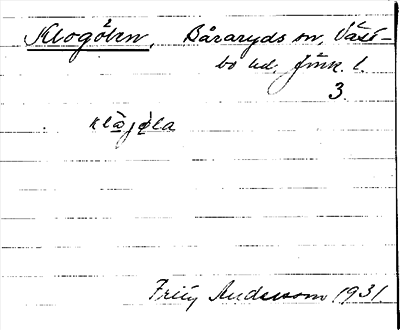 Klogölen, Båraryds sn, Väst-
bo hd. Jönk. l.
3
klɔ̀jø̀la
Fritz Andersson 1931